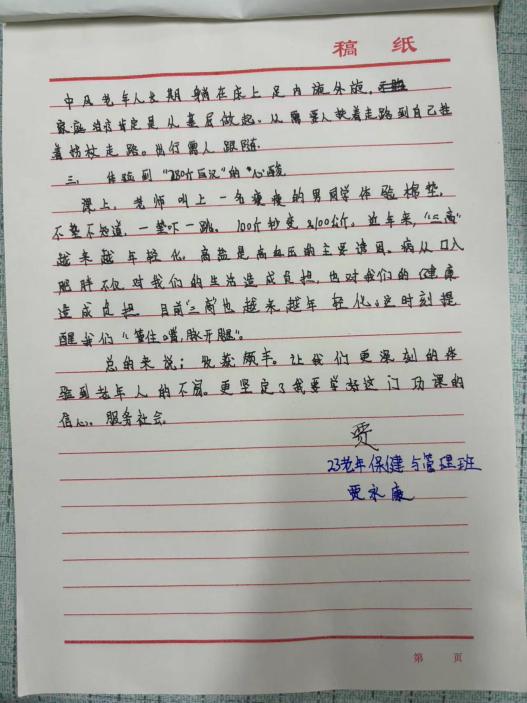 稿 纸
中风老年人长期躺在床上足内旋外旋,
家庭治疗肯定是从基层做起。从需要人扶着走路到自己拄
着拐杖走路。出行需人跟随
三. 体验到“280斤巨汉”的“心酸
课上,老师叫上一名瘦瘦的男同学体验棉垫,
不垫不知道,一垫吓一跳。100斤秒变200公斤。近年来,“三高”
越来越年轻化。高盐是高血压的主要诱因。病从口入
肥胖不仅对我们的生活造成负担,也对我们的健康
造成负担 目前“三高”也越来越年轻化。这时刻提
醒我们“管住嘴,脉开腿”。
总的来说;收获颇丰。让我们更深刻的体
验到老年人的不易。更坚定了我要学好这门功课的
信心,服务社会。
贾
23老年保健与管理班
贾永康
第 页